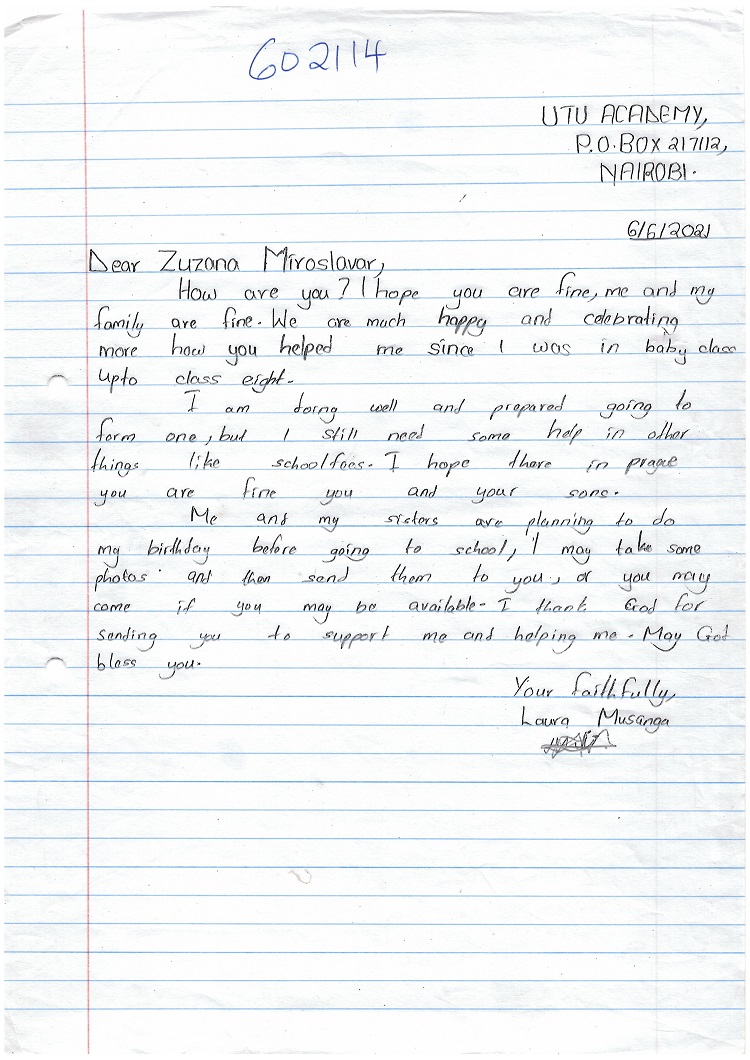 602114
UTU ACADEMY,
P.O.BOX 217112,
NAIROBI.
6/6/2021
Dear Zuzana Miroslavar,
How are you? I hope you are fine, me and my
family are fine. We are much happy and celebrating
more how you helped me since I was in baby class
upto class eight.
I am doing well and prepared going to
form one, but I still need some help in other
things like schoolfees. I hope there in prague
you are fine you and your sons.
Me and my sisters are planning to do
my birthday before going to school, I may take some
photos and then send them to you, or you may
come if you may be available. I thank God for
sending you to support me and helping me. May God
bless you.
Your faithfully,
Laura Musanga